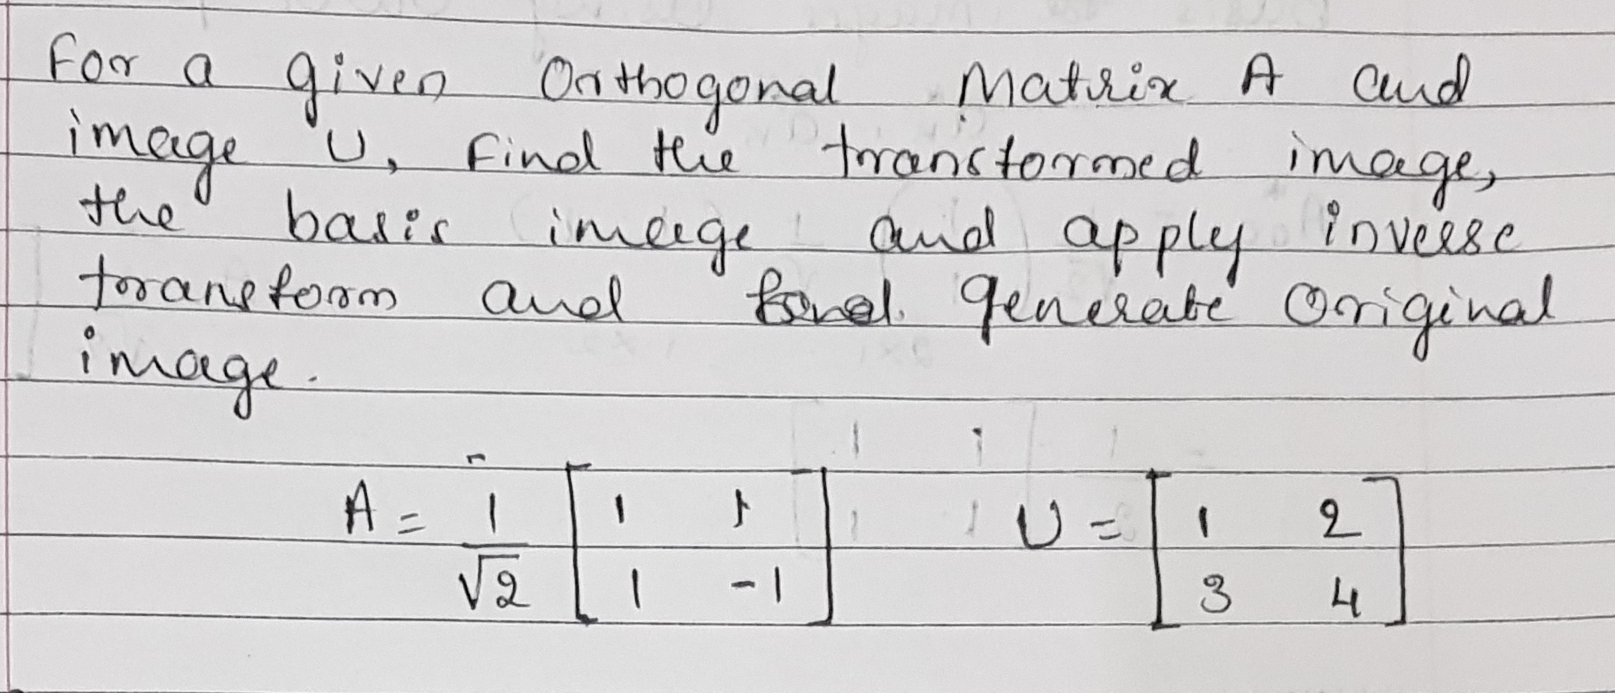 For a given Orthogonal Matrix A and
image U, Find the transformed image,
the basis image and apply inverse
transform and generate Original
image.
A = 1/√2 [ 1 1 U = [ 1 2
1 -1 ] 3 4 ]